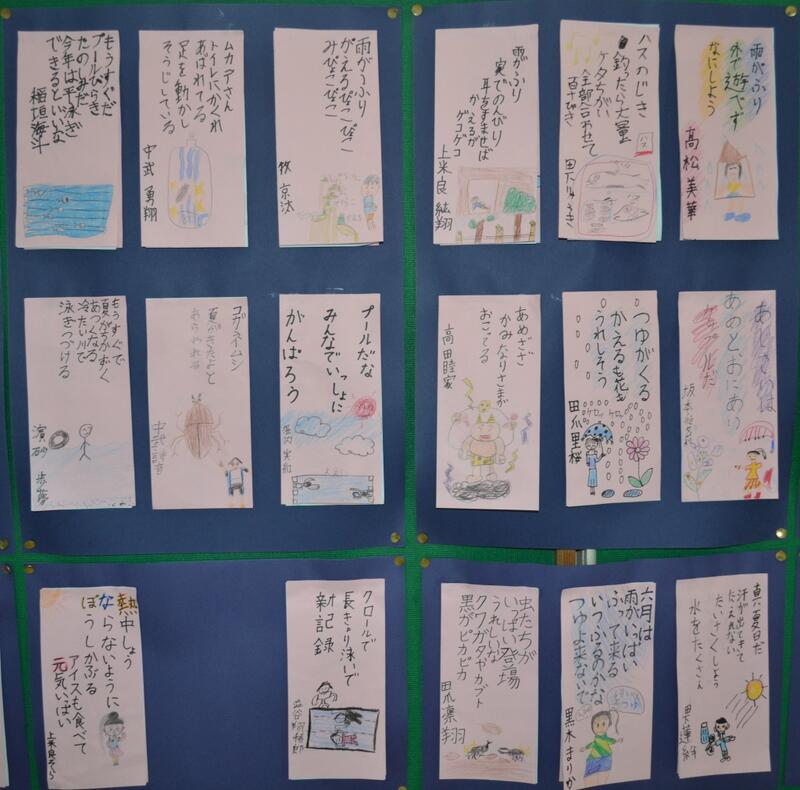 雨がふり
外で遊べず
なにしよう
高松美華
ハスのじき
釣ったら大量
ケタちがい
全部合わせて
百さびき
ハス
雨がふり
家でのんびり
耳をすませば
かえるが
ゲコゲコ
上米良紘翔
雨がふり
かえるぴょこぴょこ
みぴょこぴょこ
牧京汰
ムカデさん
トイレにかくれ
あばれてる
足を動かし
そうじしている
中武勇翔
もうすぐだ
プールびらき
たのしみだ
今年は平泳ぎ
できるといいな
稲垣海斗
あめのとおにあい
つゆがくる
かえるも花も
うれしそう
田爪里桜
ケロッ
ケロッ
あめざあざあ
かみなりさまが
おこってる
プールだな
みんなでいっしょに
がんばろう
夏がきたよと
あらわれる
もうすぐで
夏がちかづく
あつくなる
冷たい川で
泳ぎつづける
濵砂歩夢
真夏日だ
汗が出てきて
たえきれない
たいさくしよう
水をたくさん
六月は
雨がいっぱい
ふって来る
いつふるのかな
つゆよ来ないで
黒木まりか
虫たちが
いっぱい登場
うれしいな
クワガタやカブト
黒がピカピカ
田爪凛翔
クロールで
長きょり泳いで
新記録
熱中しょう
ならないように
ぼうしかぶる
アイスも食べて
元気いっぱい
上米良そら